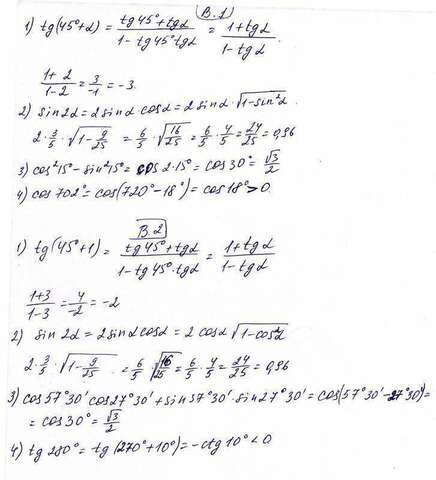 В.1
1) tg(45°+α) = (tg45°+tgα)/(1-tg45°tgα) = (1+tgα)/(1-tgα)
(1+2)/(1-2) = 3/-1 = -3.
2) sin2α=2sinα cosα=2sinα·√(1-sin²α).
2·3/5·√(1-9/25) = 6/5·√(16/25) = 6/5·4/5 = 24/25 = 0,96
3) cos²15°-sin²15°= cos2·15°= cos30° = √3/2
4) cos702°=cos(720°-18°)=cos18°>0.
В.2
1) tg(45°+1) = (tg45°+tgα)/(1-tg45°·tgα) = (1+tgα)/(1-tgα)
(1+3)/(1-3) = 4/-2 = -2
2) sin2α=2sinαcosα=2cosα√(1-cos²α)
2·3/5·√(1-9/25) = 6/5·√(16/25) = 6/5·4/5 = 24/25 = 0,96
3) cos57°30'cos27°30'+sin57°30'·sin27°30'=cos(57°30'-27°30')=
= cos30°= √3/2
4) tg280°= tg(270°+10°)=-ctg10°<0